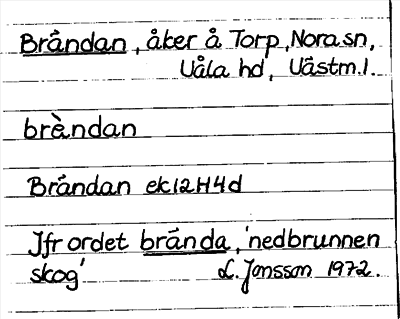 Brändan, åker å Torp, Nora sn,
Våla hd, Västm.l.
brèndan
Brändan ek 12H4d
Jfr ordet brända, 'nedbrunnen
skog' L. Jonsson 1972.